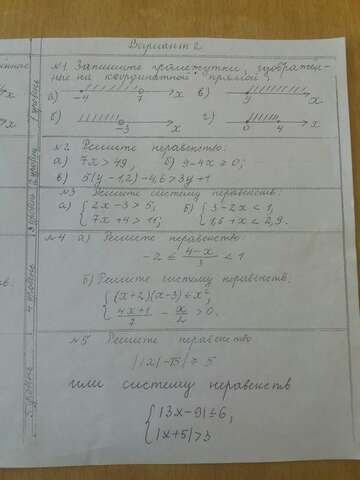 Вариант 2
N1 Запишите промежутки, изображен-
ные на координатной прямой:
а) -4 7 x в) 9 x
б) -3 x г) 0 4 x
N2 Решите неравенство:
а) 7x > 49, б) 9-4x ≥ 0;
в) 5(y-1,2)-4,6 > 3y+1
N3 Решите систему неравенств:
а) { 2x-3 > 5, б) { 3-2x < 1,
7x+4 > 11; 1,6+x < 2,9.
N4 а) Решите неравенство:
-2 ≤ (4-x)/3 < 1
б) Решите систему неравенств:
{ (x+2)(x-3) ≤ x²,
(4x+1)/7 - x/2 > 0.
N5 Решите неравенство
||x|-15| ≥ 5
или систему неравенств
{ |3x-9| ≤ 6,
|x+5| > 3
1 уровень
2 уровень
3 уровень
4 уровень
5 уровень